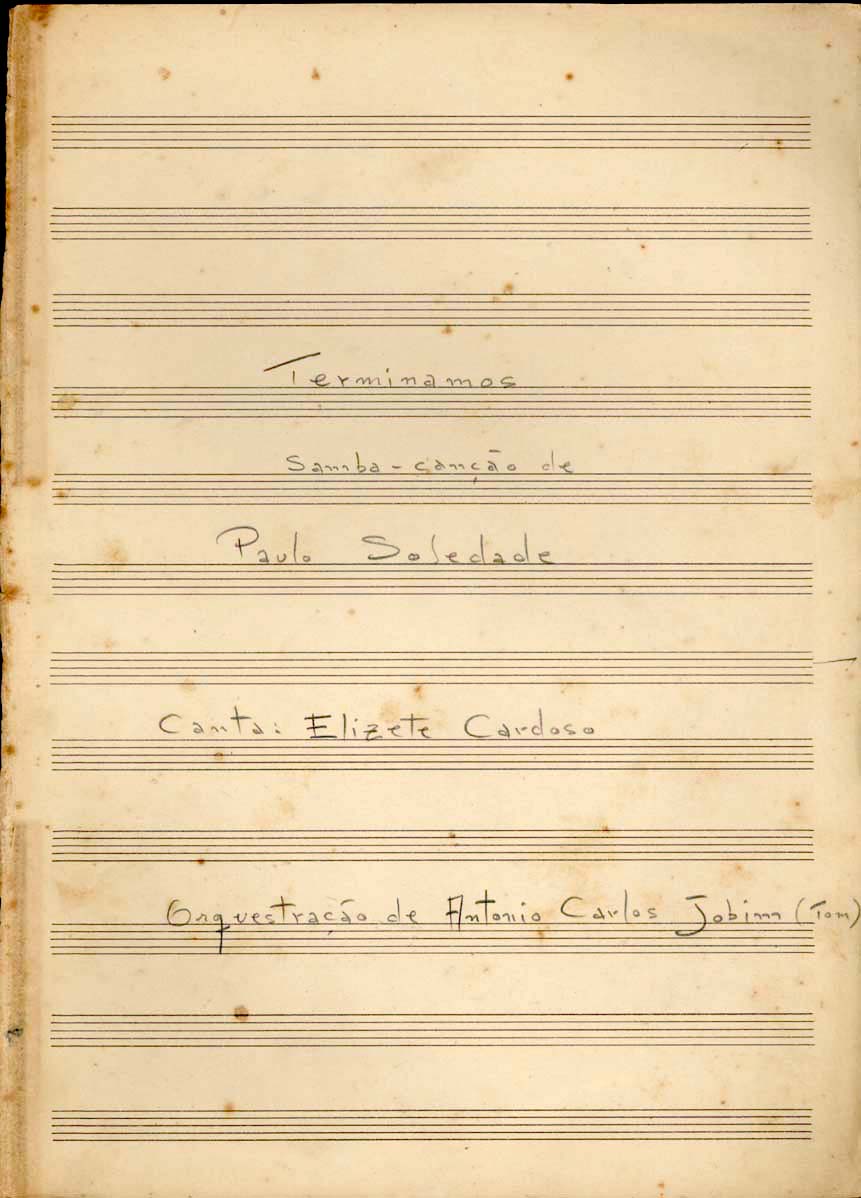 Terminamos
Samba-canção de
Paulo Soledade
Canta: Elizete Cardoso
Orquestração de Antonio Carlos Jobim (Tom)